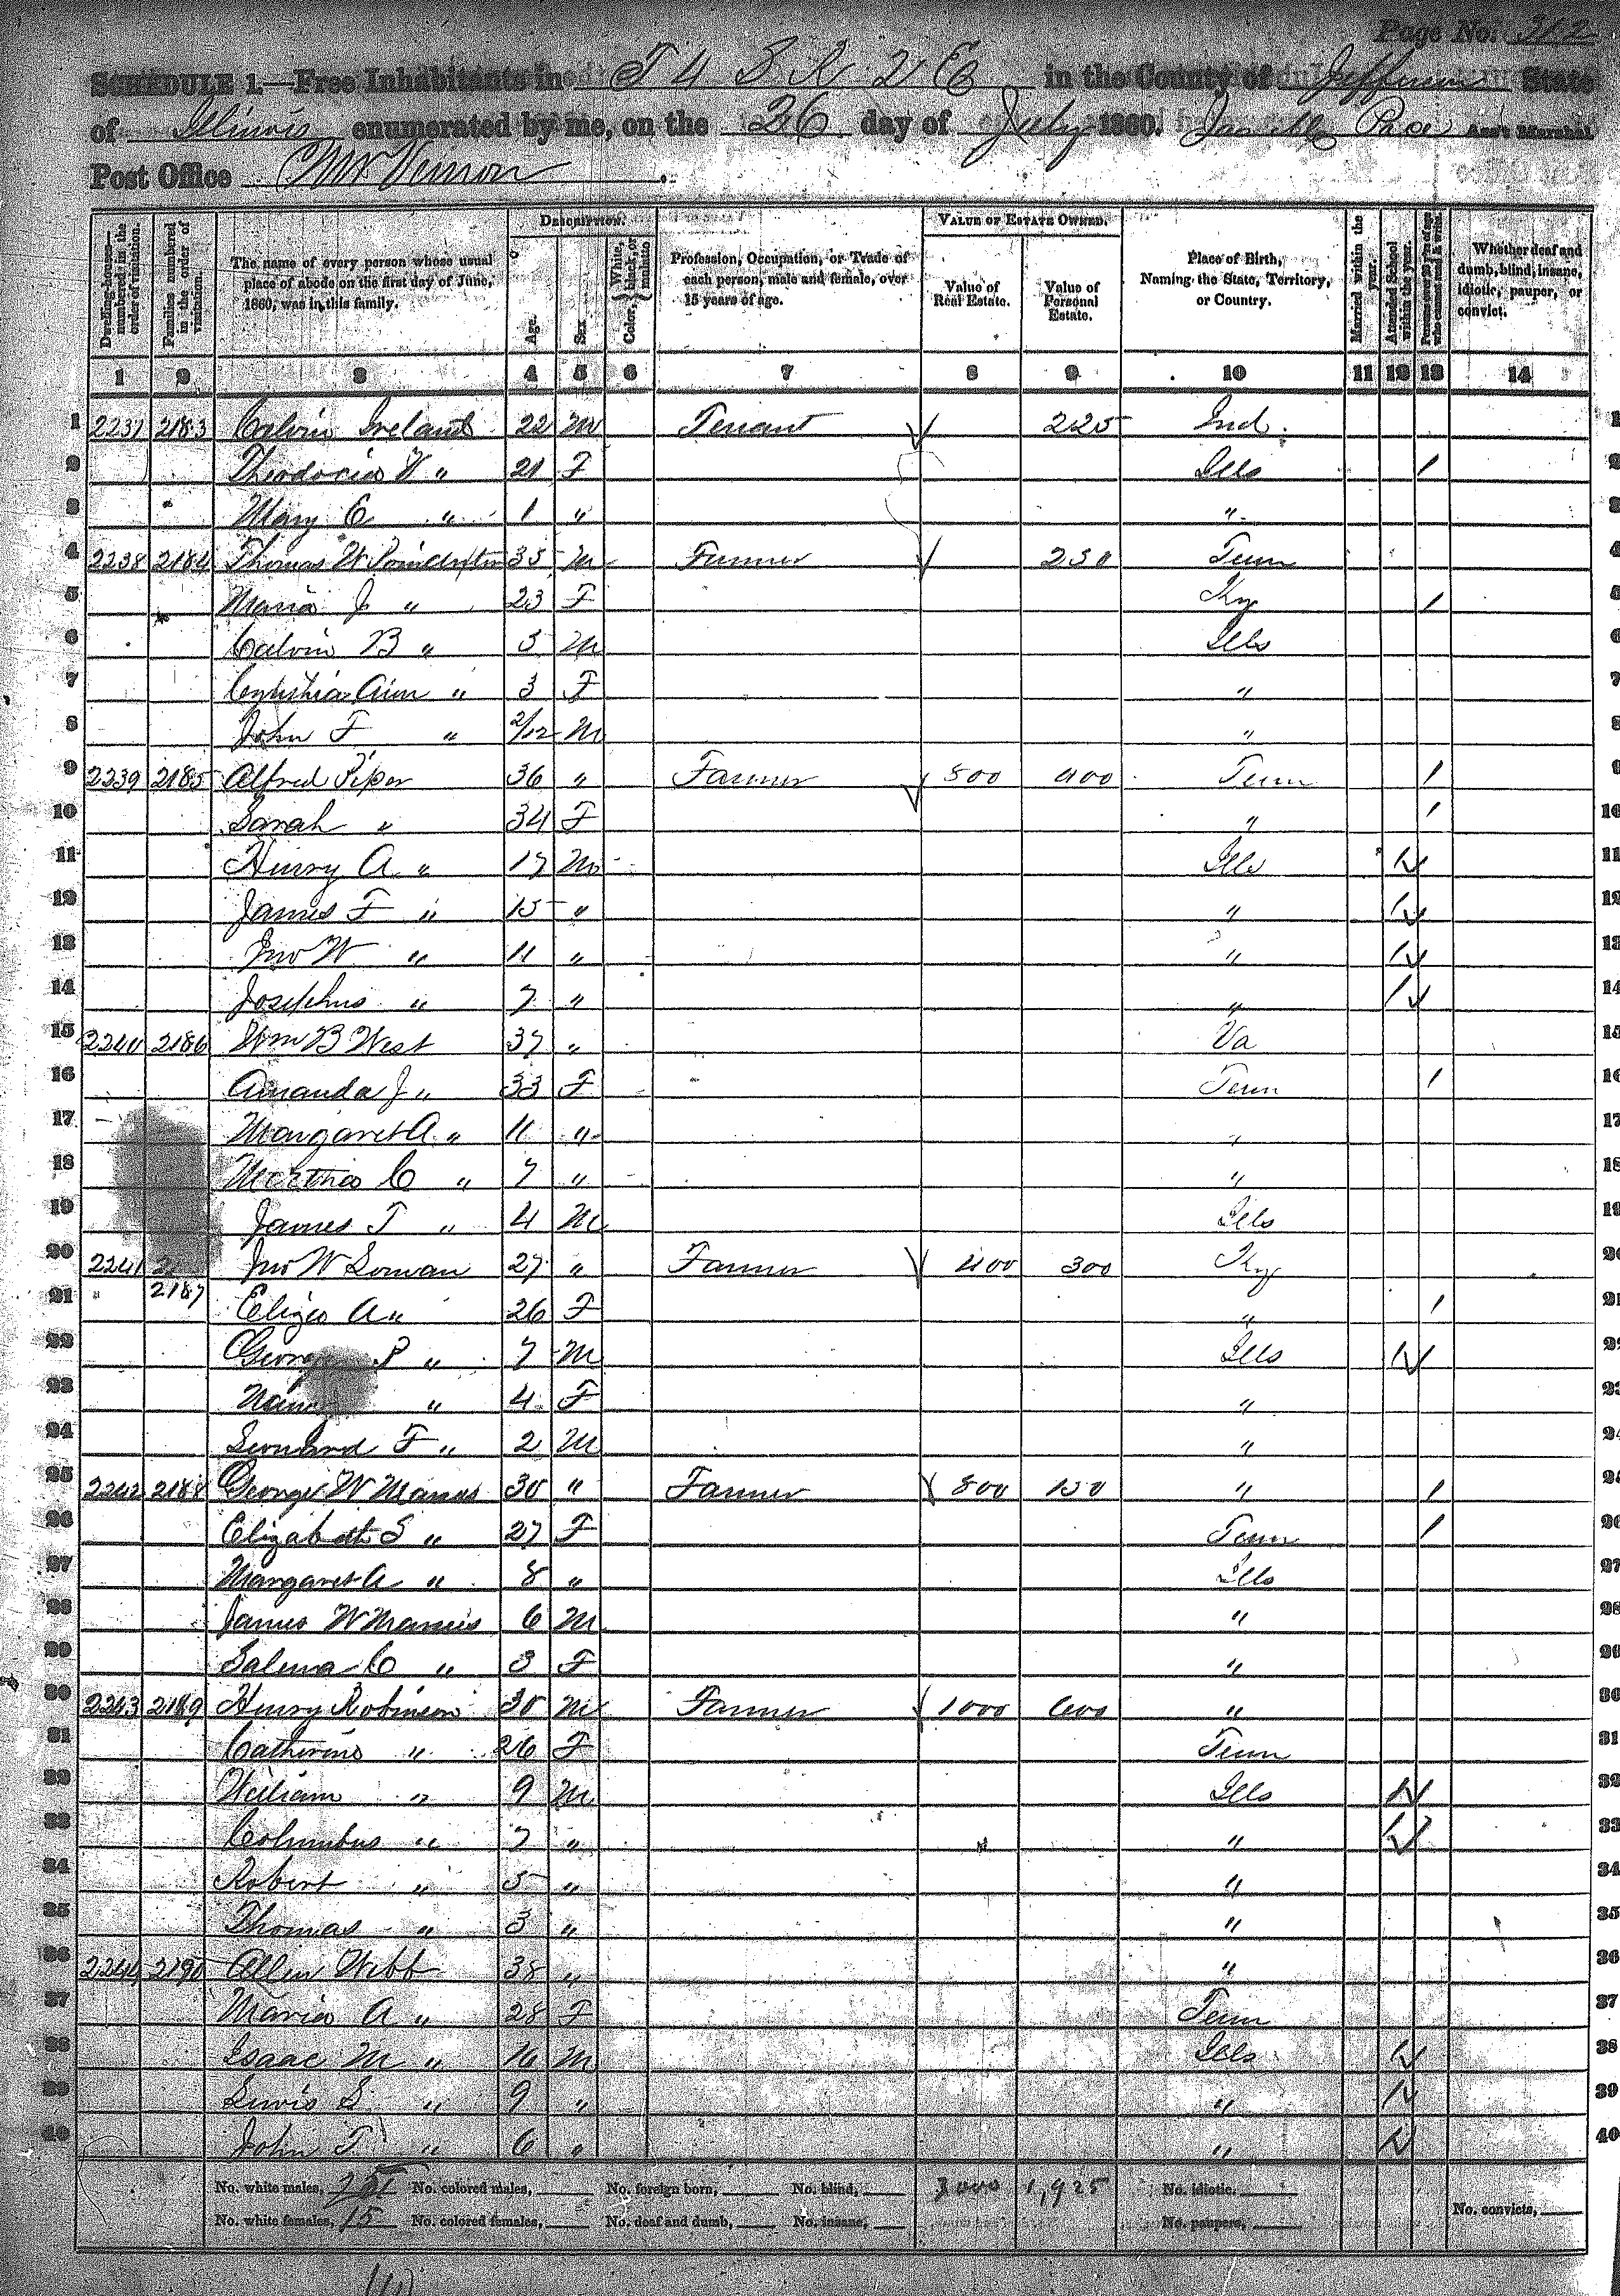 Page No. 312
SCHEDULE 1.—Free Inhabitants in T 4 S R 2 E in the County of Jefferson State
of Illinois enumerated by me, on the 26 day of July 1860. Pace Ass't Marshal
Post Office Mt Vernon.
Dwelling-houses—numbered in the order of visitation. Families numbered in the order of visitation. The name of every person whose usual place of abode on the first day of June, 1860, was in this family. DESCRIPTION. Age. Sex Color, White, black, or mulatto Profession, Occupation, or Trade of each person, male and female, over 15 years of age. VALUE OF ESTATE OWNED. Value of Real Estate. Value of Personal Estate. Place of Birth, Naming the State, Territory, or Country. Married within the year. Attended School within the year. Persons over 20 years of age who cannot read & write. Whether deaf and dumb, blind, insane, idiotic, pauper, or convict.
1 2 3 4 5 6 7 8 9 10 11 12 13 14
1 2237 2183 Calvin Ireland 22 M Tenant 225 Ind. 1
2 Theodocia W " 21 F Ills / 2
3 Mary C " 1 " " 3
4 2238 2184 Thomas W Poindexter 35 M Farmer 230 Tenn 4
5 Maria J " 23 F Ky / 5
6 Calvin B " 5 M Ills 6
7 Cynthia Ann " 3 F " 7
8 John F " 2/12 M " 8
9 2239 2185 Alfred Piper 36 " Farmer 500 400 Tenn / 9
10 Sarah " 34 F " / 10
11 Henry A " 17 M Ills / 11
12 James F " 15 " " / 12
13 Jno W " 11 " " / 13
14 Josephus " 7 " " / 14
15 2240 2186 Wm B West 37 " Va 15
16 Amanda J " 33 F Tenn / 16
17 Margaret A " 11 " " 17
18 Martha C " 7 " " 18
19 James T " 4 M Ills 19
20 2241 Jno W Sowan 27 " Farmer 400 300 Ky 20
21 2187 Eliza A " 26 F " / 21
22 George P " 7 M Ills / 22
23 " 4 F " 23
24 Leonard F " 2 M " 24
25 2242 2188 George W Manus 30 " Farmer 800 150 " / 25
26 Elizabeth S " 27 F Tenn / 26
27 Margaret A " 8 " Ills 27
28 James W Manus 6 M " 28
29 Salena C " 3 F " 29
30 2243 2189 Henry Robinson 30 M Farmer 1000 600 " 30
31 Catherine " 26 F Tenn 31
32 William " 9 M Ills / 32
33 Columbus " 7 " " / 33
34 Robert " 5 " " 34
35 Thomas " 3 " " 35
36 2244 2190 Allen Webb 38 " " 36
37 Maria A " 28 F Tenn 37
38 Isaac M " 16 M Ills / 38
39 Lewis S " 9 " " / 39
40 John T " 6 " " / 40
No. white males, 25 No. colored males, No. foreign born, No. blind, 3000 1,925 No. idiotic.
No. white females, 15 No. colored females, No. deaf and dumb, No. insane, No. paupers, No. convicts,